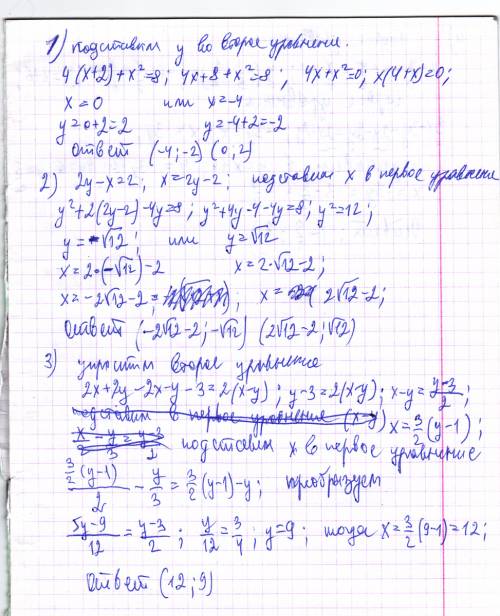 1) подставим y во второе уравнение.
4(x+2)+x²=8; 4x+8+x²=8; 4x+x²=0; x(4+x)=0;
x=0 или x=-4
y=0+2=2 y=-4+2=-2
Ответ (-4;-2) (0,2)
2) 2y-x=2; x=2y-2; подставим x в первое уравнение
y²+2(2y-2)-4y=8; y²+4y-4-4y=8; y²=12;
y=-√12; или y=√12
x=2·(-√12)-2 x=2·√12-2;
x=-2√12-2; x= 2√12-2;
Ответ (-2√12-2;-√12) (2√12-2;√12)
3) упростим второе уравнение
2x+2y-2x-y-3=2(x-y); y-3=2(x-y); x-y=(y-3)/2;
подставим в первое уравнение (x-y) x=3/2(y-1);
подставим x в первое уравнение
(3/2(y-1))/2 - y/3 = 3/2(y-1)-y; преобразуем
(5y-9)/12=(y-3)/2; y/12=3/4; y=9; тогда x=3/2(9-1)=12;
Ответ (12;9)